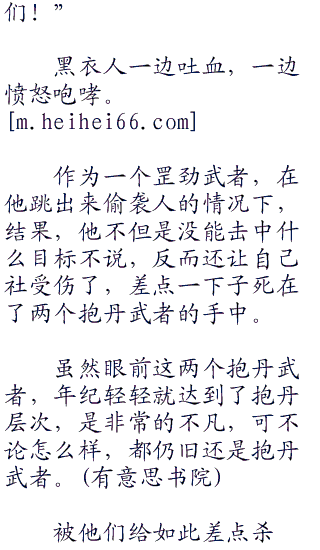 们！”
黑衣人一边吐血，一边
愤怒咆哮。
[m.heihei66.com]
作为一个罡劲武者，在
他跳出来偷袭人的情况下，
结果，他不但是没能击中什
么目标不说，反而还让自己
社受伤了，差点一下子死在
了两个抱丹武者的手中。
虽然眼前这两个抱丹武
者，年纪轻轻就达到了抱丹
层次，是非常的不凡，可不
论怎么样，都仍旧还是抱丹
武者。(有意思书院)
被他们给如此差点杀